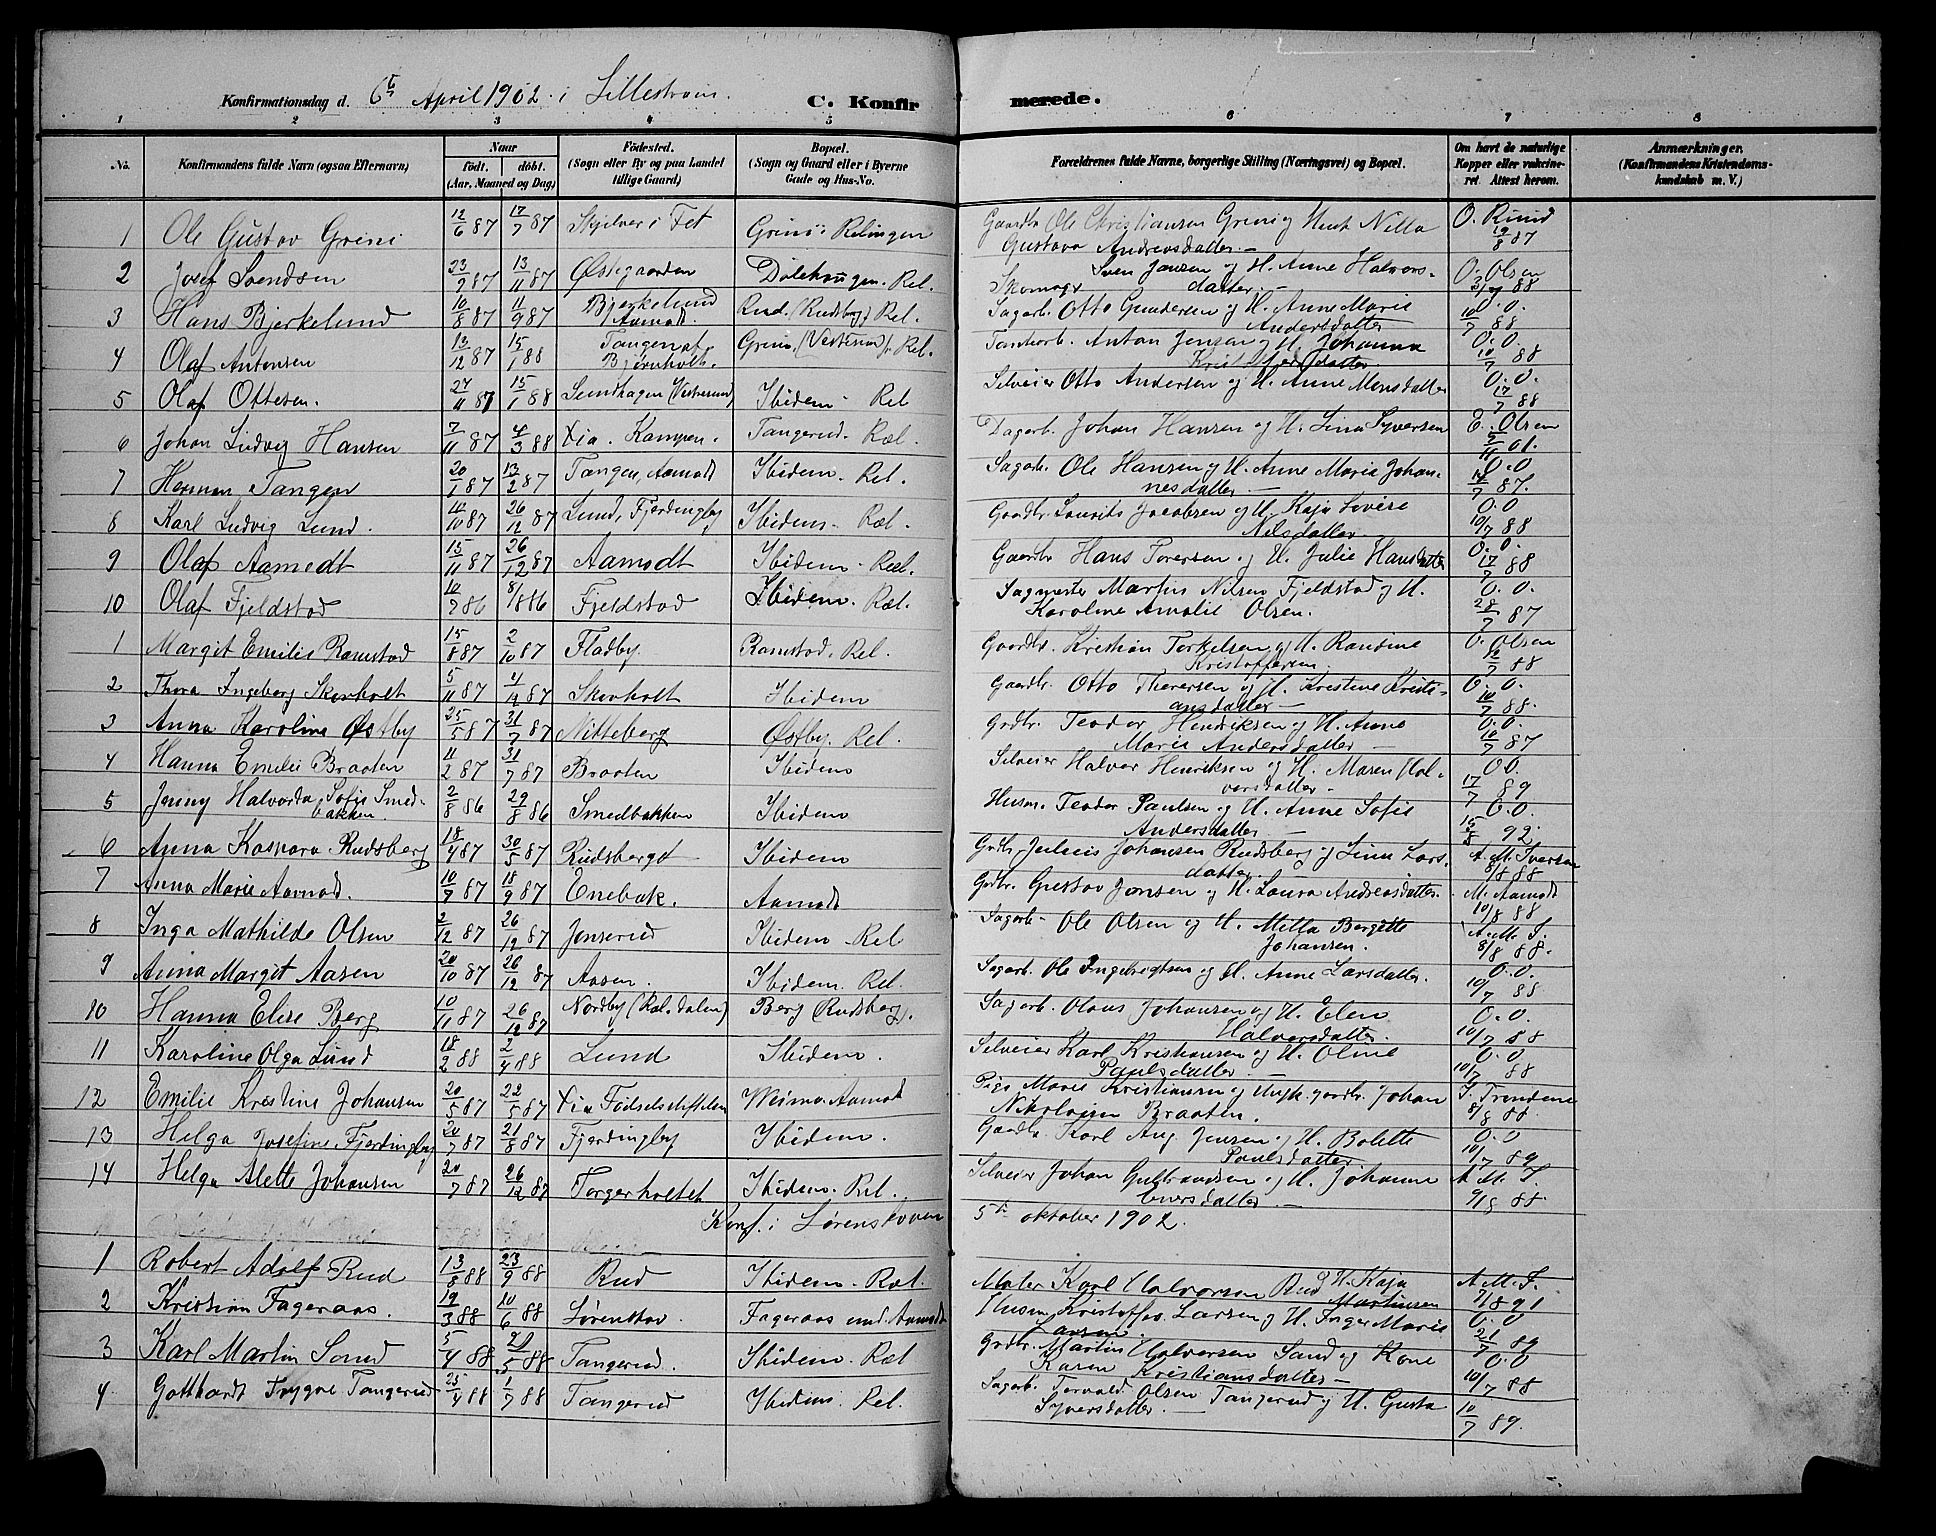 Konfirmationsdag d. 6te April 1902 i Lillestrøm. C. Konfirmerede.
1 2 3 4 5 6 7 8
No. Konfirmandens fulde Navn (ogsaa Efternavn) Naar født. døbt. (Aar, Maaned og Dag) Fødested. (Sogn eller By og paa Landet tillige Gaard) Bopæl. (Sogn og Gaard eller i Byerne Gade og Hus-No. Forældrenes fulde Navne, borgerlige Stilling (Næringsvei) og Bopæl. Om havt de naturlige Kopper eller vakcineret. Attest herom. Anmærkninger. (Konfirmandens Kristendomskundskab m. V.)
1 Ole Gustav Grini 12/6 87 17/7 87 Skjelver i Fet Grini i Relingen Gaardbr. Ole Christiansen Grini og Gustava Andreasdatter.- O. Ruud 19/8 87
2 Josef Svendsen 23/9 87 13/11 87 Østegaarden Dølehaugen. Rel. Skomager Sven Jansen og H. Anne Halvorsdatter.- O. Olsen 88
3 Hans Bjerkelund 10/8 87 11/9 87 Bjerkelund Aamodt. Rud. (Rudsberg) Rel. Sagarb. Otto Gundersen og H. Anne Marie Andersdatter O.O. 10/7 88
4 Olaf Antonsen 13/12 87 15/1 88 Tangen af Bjørnholt. Grini, Rel. Tomtearb. Anton Jensen og H. Johanna O.O. 10/7 88
5 Olaf Ottesen. 27/11 87 15/1 88 Ibidem - Rel Selveier Otto Andersen og H. Anne Monsdatter O.O. 17/7 88
6 Johan Ludvig Hansen 7/11 87 4/3 88 Xia. Kampen. Tangerud. Ræl. Dagarb. Johan Hansen og H. Lina Syversen E. Olsen 01.
7 Herman Tangen 20/1 87 13/2 87 Tangen, Aamodt Ibidem. Rel. Sagarb. Ole Hansen og H. Anne Maria Johannesdatter.- O.O 14/7 87.
8 Karl Ludvig Lund. 10/10 87 26/12 87 Lund, Fjerdingby Ibidem - Ræl. Gaardbr. Laurits Jacobsen og H. Kaja Lovise Nilsdatter O.O 10/7 88
9 Olaf Aamodt 15/11 87 26/12 87 Aamodt Ibidem - Ræl. Gaardbr. Hans Toresen og H. Julie Hansdatter O.O. 17/7 88
10 Olaf Fjeldstad 10/7 86 8/8 86 Fjeldstad Ibidem. Ræl. Sagmester Martin Nilsen Fjeldstad og H. Karoline Amalie Olsen. O.O. 28/7 87
1 Margit Emilie Ramstad 15/8 87 2/10 87 Fladby. Ramstad. Rel. Gaardbr. Kristian Torkelsen og H. Randine Kristoffersen O. Olsen 12/7 88
2 Thora Ingeborg Skovholt 5/11 87 4/12 87 Skovholt Ibidem Gaardbr. Otto Theversen og H. Kristine Kristiansdatter- O.O. 10/7 88.
3 Anna Karoline Østby 25/5 87 31/7 87 Nitteberg Østby. Rel. Grdbr. Teodor Henriksen og H. Anne Marie Andersdatter - O.O. 10/7 87
4 Hanna Emilie Braaten 11/2 87 31/7 87 Braaten Ibidem Selveier Halvor Henriksen og H. Maren Halvorsdatter - O.O. 17/7 89
5 Jenny Halvorda Sofie Smedbakken. 2/8 86 29/8 86 Smedbakken Ibidem Husm. Teodor Paulsen og H. Anne Sofie Andersdatter - O.O. 92.
6 Anna Kaspara Rudsberg 18/4 87 30/5 87 Rudsberget Ibidem Grdbr Julius Johansen Rudsberg og Lina Larsdatter. A.M. Iversen 8/8 88
7 Anna Marie Aamodt. 10/7 87 18/9 87 Enebak. Aamodt Grdbr. Gustav Jonsen og H. Laura Andreasdatter. M. Aamodt 10/8 88
8 Inga Mathilde Olsen 2/12 87 26/12 87 Jenserud Ibidem Rel Sagarb- Ole Olsen og H. Milla Bergette Johansen. A.M.I. 8/8 88.
9 Anna Margit Aasen 20/10 87 26/12 87 Aasen. Ibidem. Rel. Sagarb. Ole Ingebrigtsen og H. Anne Larsdatter. O.O. 10/7 88
10 Hanna Elise Berg 10/11 87 26/12 87 Nordby (Ræl.dalen) Berg (Rudsberg). Sagarb. Olaus Johansen og H. Elen Halvorsdatter. O.O. 10/7 88
11 Karoline Olga Lund 18/2 88 2/4 88 Lund Ibidem. Selveier Karl Kristiansen og H. Oline Paulsdatter - O.O 10/7 88
12 Emilie Kristine Johansen 20/5 87 22/5 87 Xia Fødselsstiftelsen Aamodt Pige Marie Kristiansen og Ungk. gaardbr. Johan Nikolaisen Braaten. 8/8 88.
13 Helga Josefine Fjerdingby 20/7 87 21/8 87 Fjerdingby Ibidem. Gaardbr. Karl Aug. Jensen og H. Bolette Paulsdatter O.O 10/7 89
14 Helga Alette Johansen 20/7 87 26/12 87 Torgerholtet Ibidem. Rel. Selveier Johan Gulbrandsen og H. Johanne Eversdatter.- A.M.I. 9/8 88.
Konf. i Lørenskoven 5te oktober 1902.
1 Robert Adolf Rud 13/8 88 23/9 88 Rud Ibidem - Ræl. Maler Karl Halvorsen Rud og H. Kaja Martinsen A.M.I. 91
2 Kristian Fageraas. 19/3 88 10/6 88 Lørenskov. Fageraas und. Aamodt Husm. Kristoffer Larsen og H. Inger Marie Larsen. O.O 21/7 89
3 Karl Martin Sand 5/4 88 21/5 88 Tangerud. Ibidem. Ræl Grdbr. Martin Halvorsen Sand og Kone Karen Kristiansdatter - O.O 10/7 88
4 Gotthardt Trygve Tangerud 25/4 88 1/7 88 Tangerud Ibidem. Rel. Sagarb. Torvald Olsen Tangerud og H. Gusta Syversdatter.- 10/7 89.